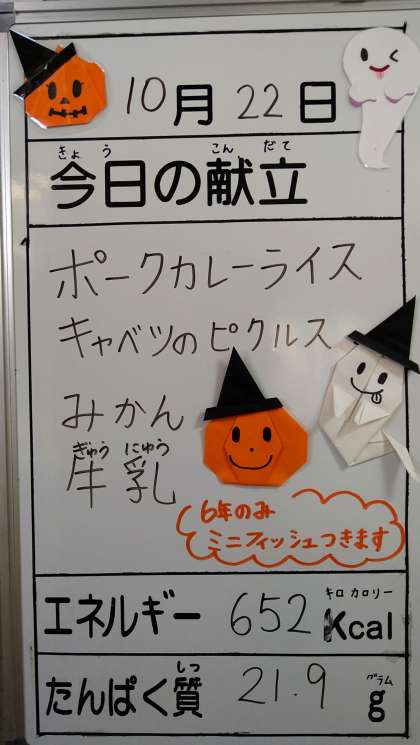 10月22日
きょうこんだて
今日の献立
ポークカレーライス
キャベツのピクルス
みかん
ぎゅうにゅう
牛乳
6年のみ
ミニフィッシュつきます
キロカロリー
エネルギー 652 Kcal
しつ グラム
たんぱく質 21.9 g